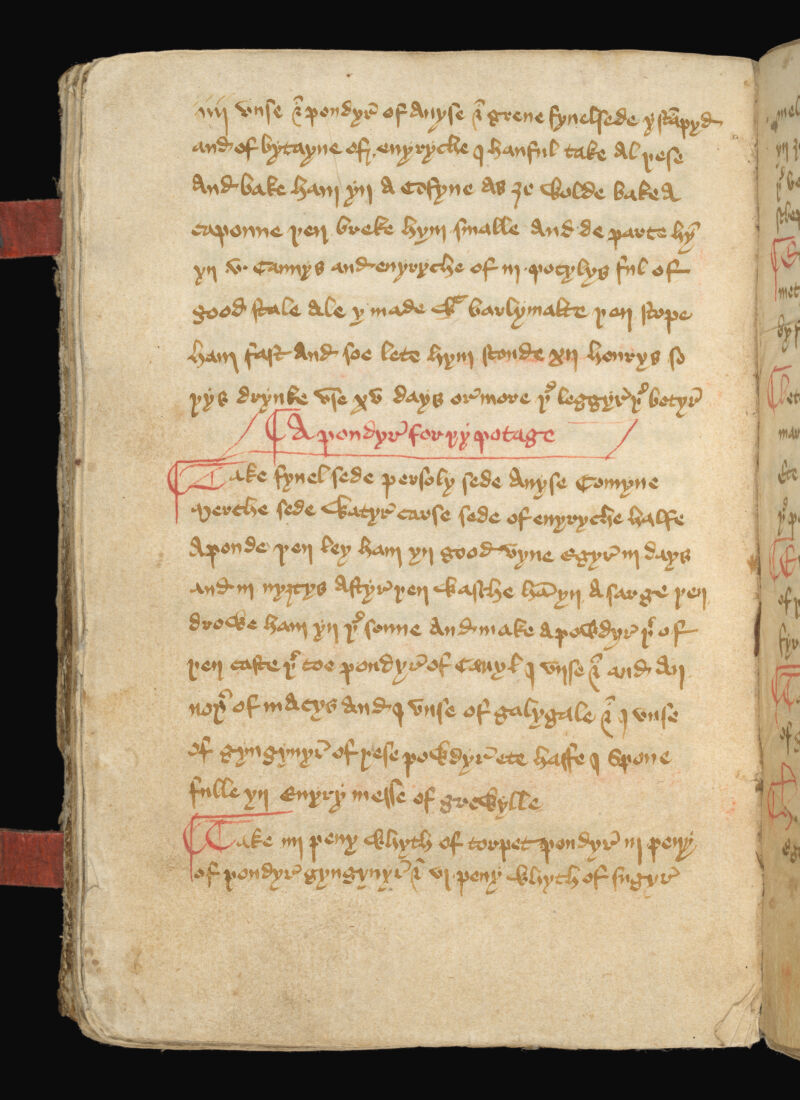 iiij vnse & pondyr of Anyse & grene fynelsede y stāpyd
and of bytayne of enyryche j hanful take al yese
And bake ham yn A Cofyne As ȝe wolde bake A
caponne yen breke hym smalle And de parte hȳ
yn v. Cannys and enyryche of iij potylys ful of
good stale Ale y made wt barlymalte yen stope
ham fast And soe lete hym stonde xij houreys so
yys drynke vse xv days or more ye leggyr ye betyr
A pondyr for yy potage
Take fynel sede persoly sede Anyse Comyne
Merche sede Watyr carse sede of enyryche halfe
A ponde yen ley ham yn good vyne egyr iij days
and iij nyȝtys Aftyr yen Wasche hā yn A sarge yen
drowe ham yn ye sonne And make A powdyr yr of
yen caste yr toe pondyr of Canyl j vnse & and An
noyr of macys And j vnse of galygale & j vnse
of gyngynyr of yese powdyr ete halfe j Spone
fulle yn Enyry messe of growylle
Take iiij peny Whyth of torpet pondyr iij peny
of pondyr gyngynyr & vi peny Whyth of sugyr